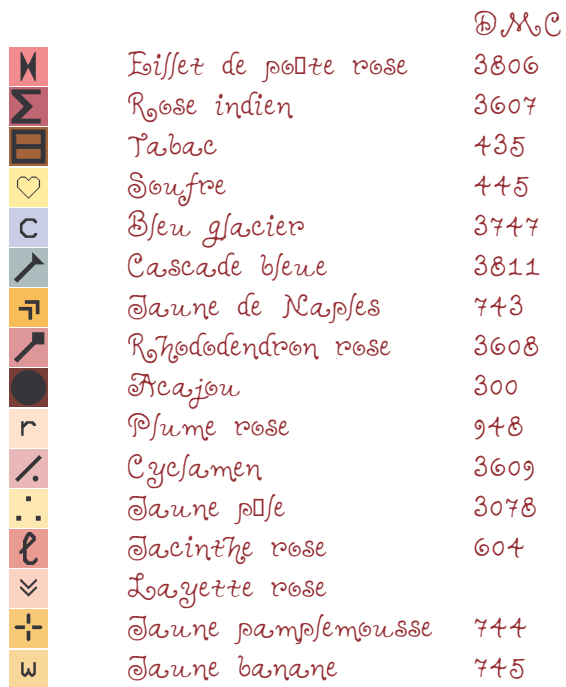 DMC
Eillet de po□te rose 3806
Σ Rose indien 3607
Tabac 435
♡ Soufre 445
C Bleu glacier 3747
Cascade bleue 3811
Jaune de Naples 743
Rhododendron rose 3608
Acajou 300
r Plume rose 948
Cyclamen 3609
Jaune p□le 3078
ℓ Jacinthe rose 604
Layette rose
Jaune pamplemousse 744
w Jaune banane 745